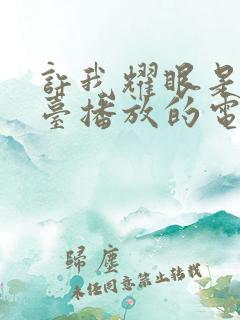 許我耀眼是
臺播放的電
歸塵
未經同意禁止轉載